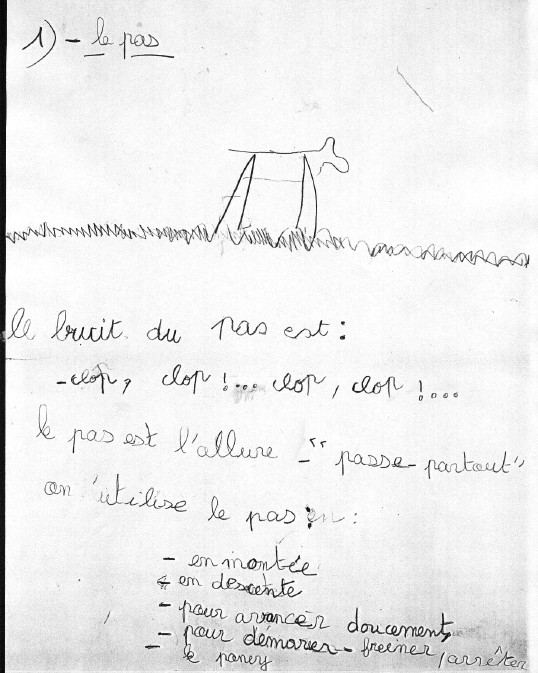 1) - le pas
le bruit du pas est :
- clop, clop !... clop, clop !...
le pas est l'allure - "passe-partout"
on utilise le pas en :
- en montée
- en descente
- pour avancer doucement
- pour démarer - freener /arrêter
- le poney